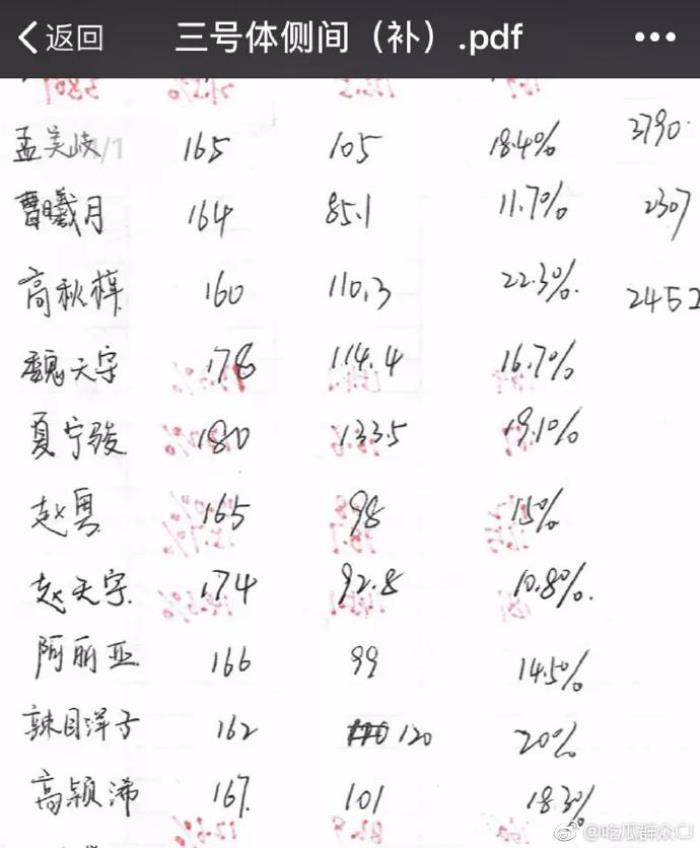 返回 三号体侧间（补）.pdf
孟美岐/1 165 105 18.4% 3790
曹曦月 164 85.1 11.7% 2307
高秋梓 160 110.3 22.3% 2452
魏天宇 178 114.4 16.7%
夏宁骏 180 133.5 19.1%
赵粤 165 98 15%
赵天宇 174 92.8 10.8%
阿丽亚 166 99 14.5%
辣目洋子 162 120 20%
高颖浠 167 101 18.3%
@吃瓜群众CJ